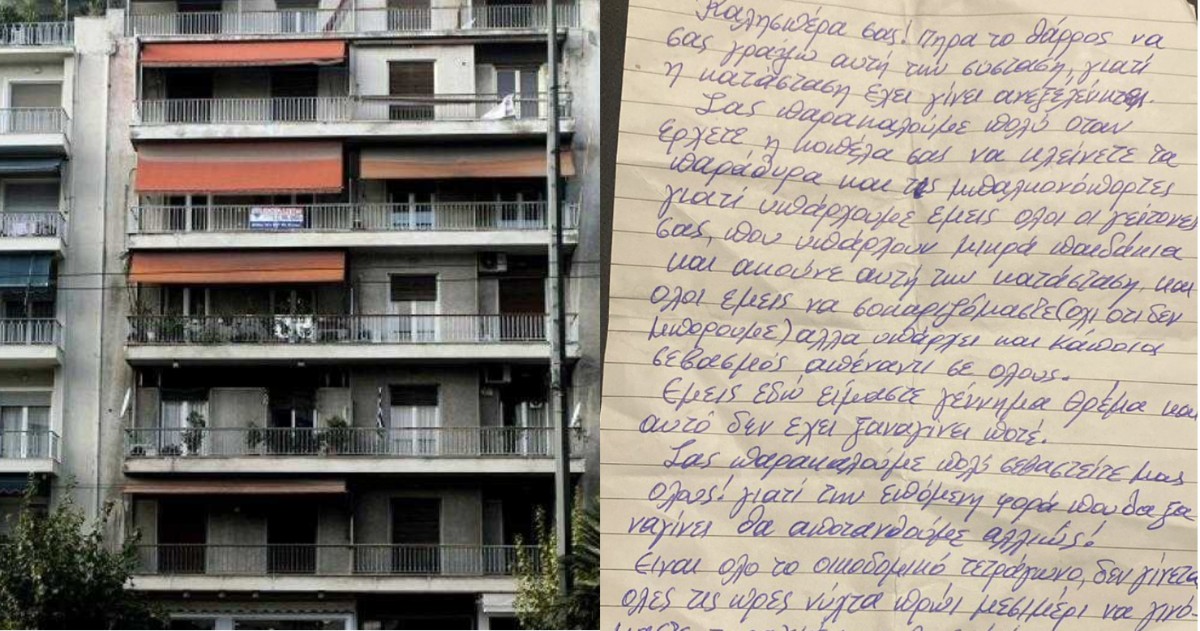 Καλησπέρα σας! Πήρα το θάρρος να
σας γράψω αυτή την σύσταση, γιατί
η κατάσταση έχει γίνει ανεξέλενκτη.
Σας παρακαλούμε πολύ όταν
έρχετε η κοπέλα σας να κλείνετε τα
παράθυρα και τις μπαλκονόπορτες
γιατί υπάρχουμε εμείς ολοι οι γείτονες
σας, που υπάρχουν μικρά παιδάκια
και ακούνε αυτή την κατάσταση και
ολοι εμείς να σοκαριζόμαστε(οχι οτι δεν
μπορουμε) αλλα υπάρχει και κάποιος
σεβασμός απέναντι σε ολους.
Εμείς εδώ είμαστε γέννημα θρέμα και
αυτό δεν έχει ξαναγίνει ποτέ.
Σας παρακαλούμε πολύ σεβαστείτε μας
ολους! γιατί την επόμενη φορά που θα ξα
ναγίνει θα αποτανθούμε αλλιώς!
Είναι ολο το οικοδομικό τετράγωνο, δεν γίνεται
ολες τις ώρες νύχτα πρωι μεσιμέρι να γινό-